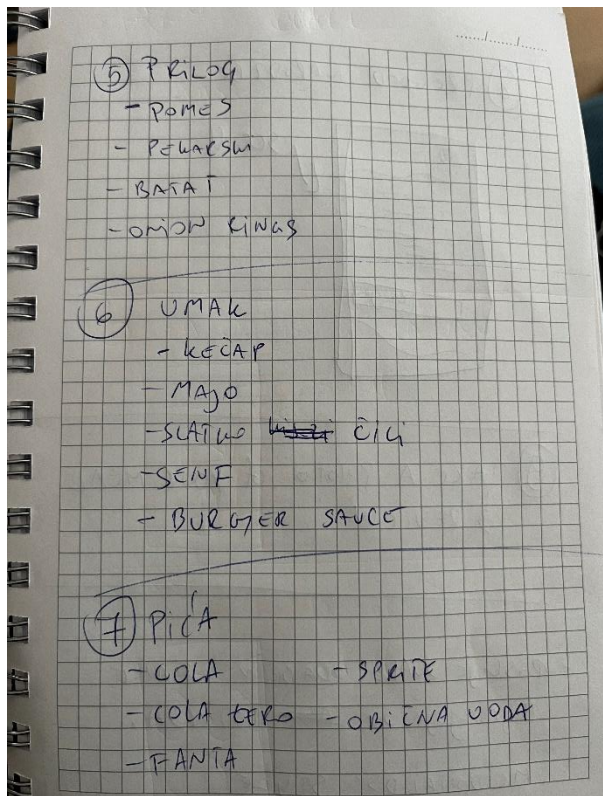 5 PRILOG
- POMES
- PEKARSKI
- BATAT
- ONION RINGS
6 UMAK
- KEČAP
- MAJO
- SLATKO ČILI
- SENF
- BURGER SAUCE
7 PIĆA
- COLA - SPRITE
- COLA ZERO - OBIČNA VODA
- FANTA